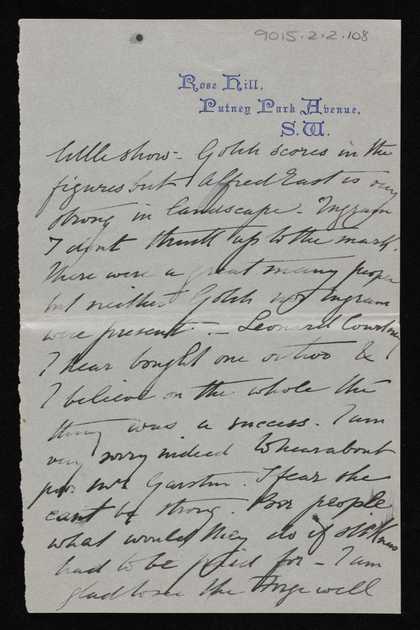 9015.2.2.108
Rose Hill,
Putney Park Avenue,
S.W.
little show - Gotch scores in the
figures but Alfred East is very
strong in landscape - Ingram
I dont think up to the mark.
There were a great many people
but neither Gotch nor Ingram
were present - Leonard Courtney
I hear bought one or two &
I believe on the whole the
thing was a success. I am
very sorry indeed to hear about
poor Mrs Garstin. I fear she
cant be strong. Poor people
what would they do if
had to be paid for - I am
glad to see the Forge will